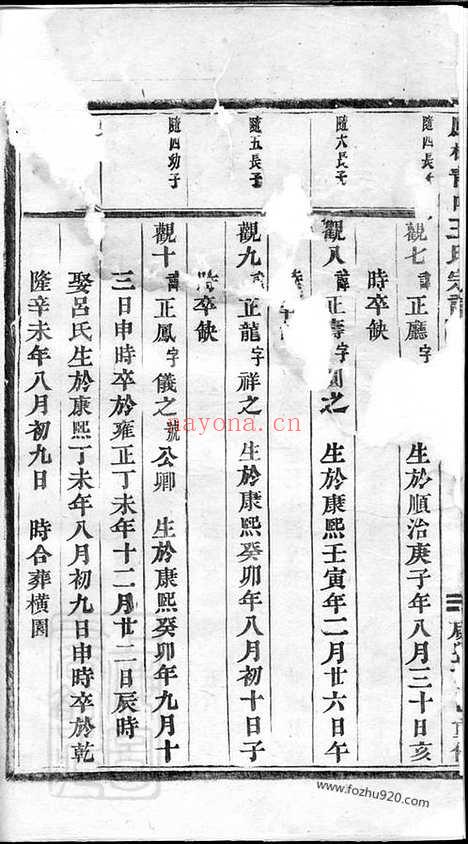 王氏宗譜
隨四長
觀七諱正廳字
生於順治庚子年八月三十日亥
時卒缺
隨六長子
觀八諱正壽字
之
生於康熙壬寅年二月廿六日午
隨五長子
觀九諱正龍字祥之
生於康熙癸卯年八月初十日子
時卒缺
隨四幼子
觀十諱正鳳字儀之號公卿
生於康熙癸卯年九月十
三日申時卒於雍正丁未年十二月廿二日辰時
娶呂氏生於康熙丁未年八月初九日申時卒於乾
隆辛未年八月初九日
時合葬橫園
nayona.cn
www.fozhu920.com